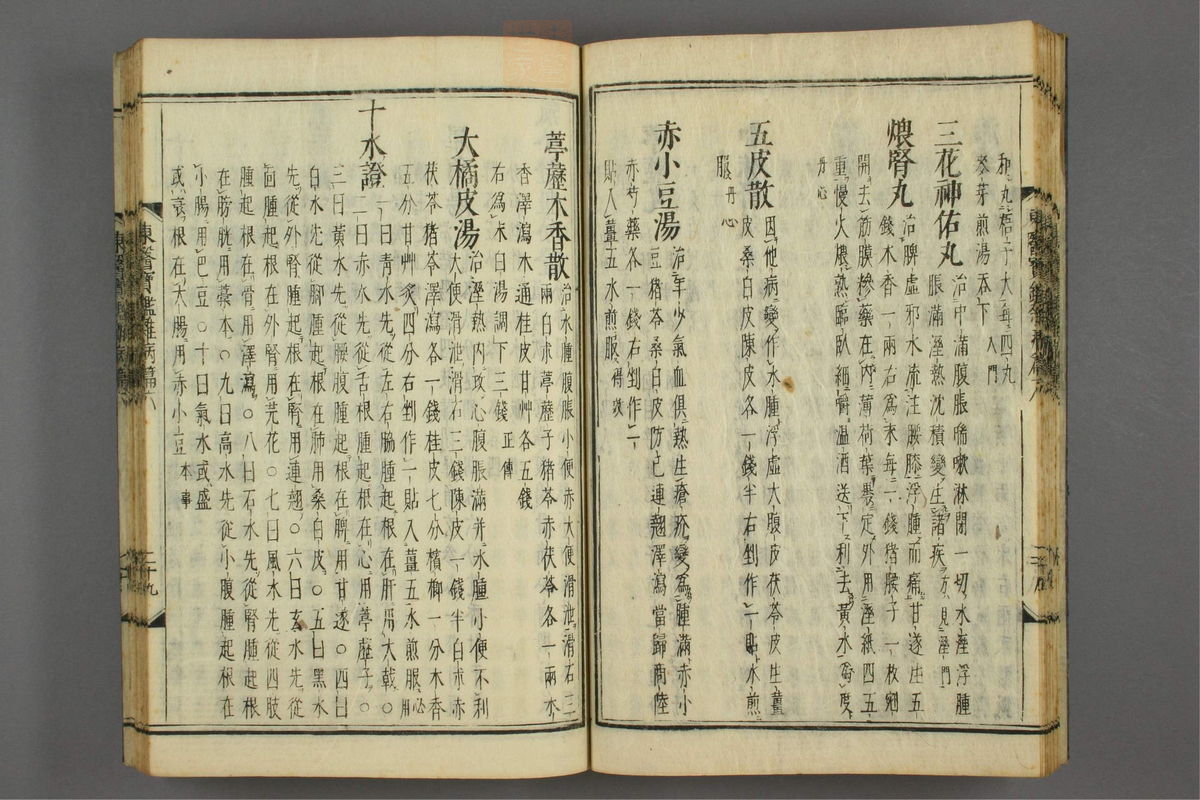 和丸梧子大每四十丸
麥芽煎湯吞下入門
三花神佑丸治中滿腹脹喘嗽淋閉一切水溼浮腫
脹滿溼熱沈積變生諸疾方見溼門
煨腎丸治脾虛邪水流注腰膝浮腫而痛甘遂生五
錢木香一兩右爲末每二錢猪腰子一枚剜
開去筋膜摻藥在內薄荷葉裹定外用溼紙四五
重慢火煨熟臨臥細嚼溫酒送下利去黃水爲度
丹心
五皮散因他病變作水腫浮虛大腹皮茯苓皮生薑
皮桑白皮陳皮各一錢半右剉作一貼水煎
服丹心
赤小豆湯治年少氣血俱熱生瘡疥變爲腫滿赤小
豆猪苓桑白皮防己連翹澤瀉當歸商陸
赤芍藥各一錢右剉作一
貼入薑五水煎服得效
葶藶木香散治水腫腹脹小便赤大便滑泄滑石三
兩白朮葶藶子猪苓赤茯苓各一兩木
香澤瀉木通桂皮甘艸各五錢
右爲末白湯調下三錢正傳
大橘皮湯治溼熱內攻心腹脹滿并水腫小便不利
大便滑泄滑石三錢陳皮一錢半白朮赤
茯苓猪苓澤瀉各一錢桂皮七分檳榔一分木香
五分甘艸灸四分右剉作一貼入薑五水煎服必用
十水證一曰靑水先從左右脇腫起根在肝用大戟○
二曰赤水先從舌根腫起根在心用葶藶子○
三曰黃水先從腰腹腫起根在脾用甘遂○四曰
白水先從脚腫起根在肺用桑白皮○五曰黑水
先從外腎腫起根在腎用連翹○六曰玄水先從
面腫起根在外腎用芫花○七曰風水先從四肢
腫起根在骨用澤瀉○八曰石水先從腎腫起根
在膀胱用藁本○九曰高水先從小腹腫起根在
小腸用巴豆○十曰氣水或盛
或衰根在大腸用赤小豆本事
東醫寶鑑雜病篇六